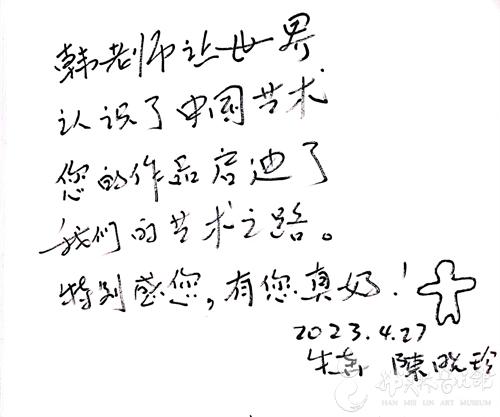 韩老师让世界
认识了中国艺术
您的作品启迪了
我们的艺术之路。
特别感您，有您真好！
2023.4.27
朱喜 陳晓珍
韩美林艺术馆
HAN MEI LIN ART MUSEUM